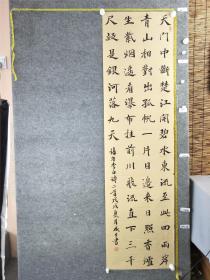 天門中斷楚江開碧水東流至此回兩岸
青山相對出孤帆一片日邊來日照香爐
生紫烟遥看瀑布挂前川飛流直下三千
尺疑是銀河落九天 錄唐李白詩二首戊戌夏月